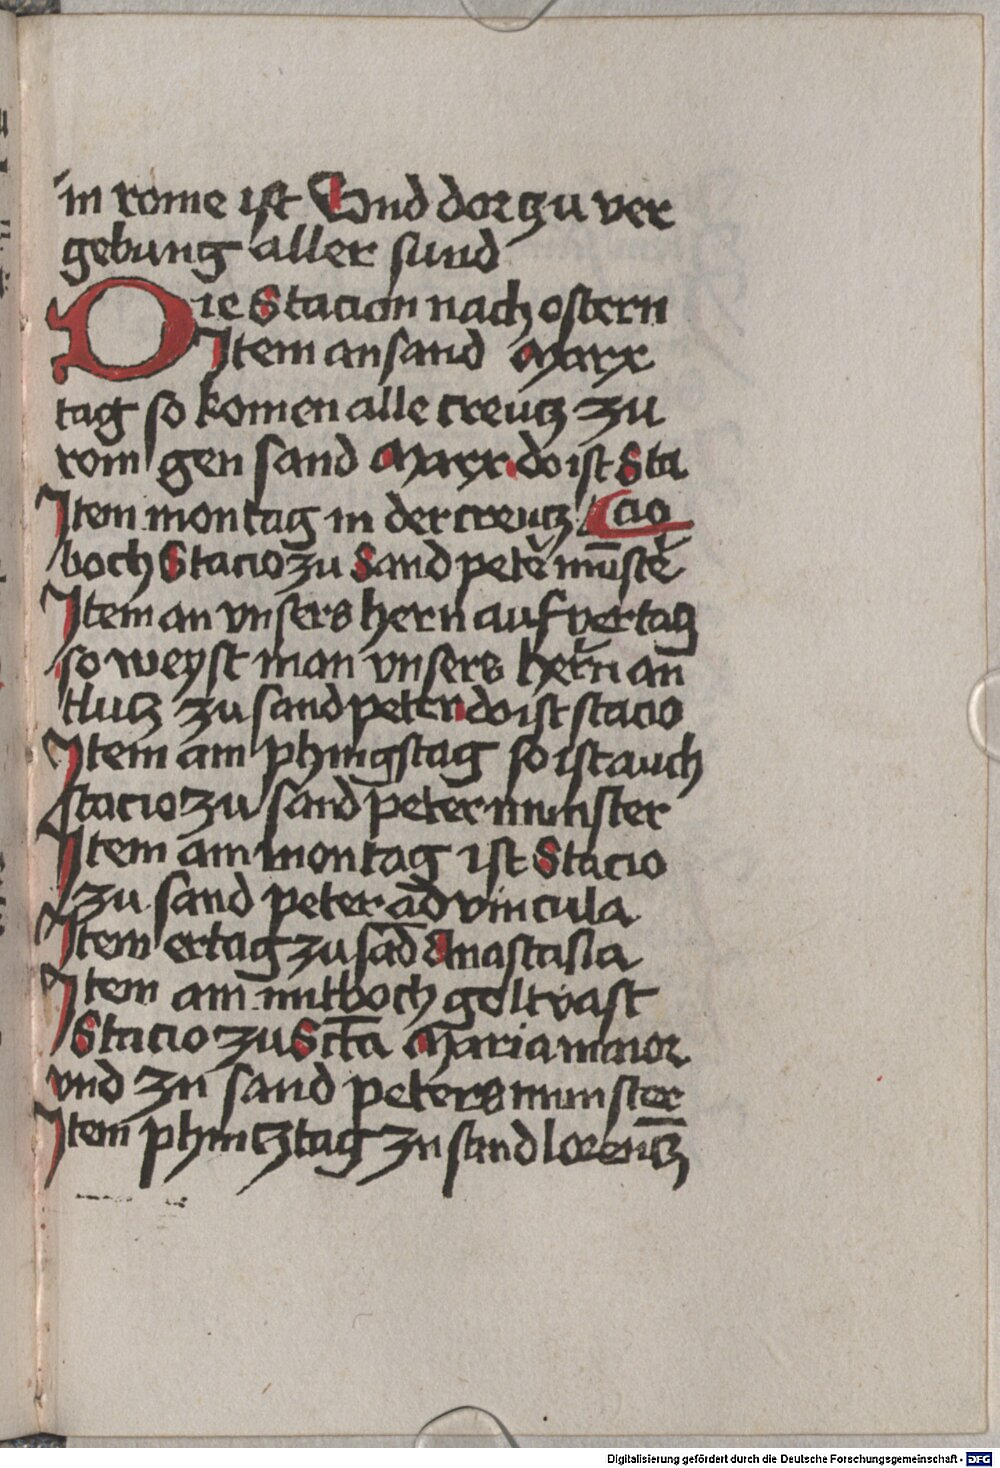 in rome ist Vnd dorzu ver
gebung aller sund
Die Stacion nach ostern
Item an sand Marx
tag so komen alle creutz zu
rom gen sand Marx do ist Sta
Item montag in der creutz cio
boch Stacio zu Sand peter munster
Item an vnsers hern aufvertag
so weyst man vnsers hern an
tlutz zu sand peter do ist stacio
Item am phingstag so ist auch
stacio zu sand peter munster
Item am montag ist Stacio
zu sand peter ad vincula
Item ertag zu sand Anastasia
Item am mitboch goltvast
Stacio zu Scta Maria maior
vnd zu sand peters munster
Item phincztag zu sand lorentz
Digitalisierung gefördert durch die Deutsche Forschungsgemeinschaft - DFG